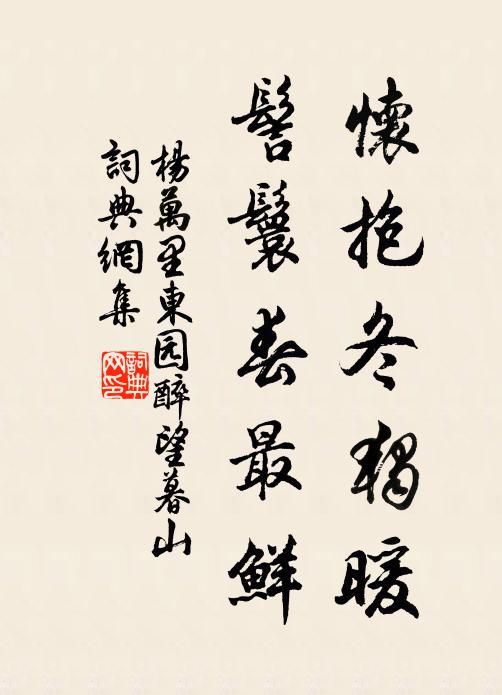 懷抱冬獨暖
髻鬟春最鮮
楊萬里東园醉望暮山
詞典網集
詞典网印